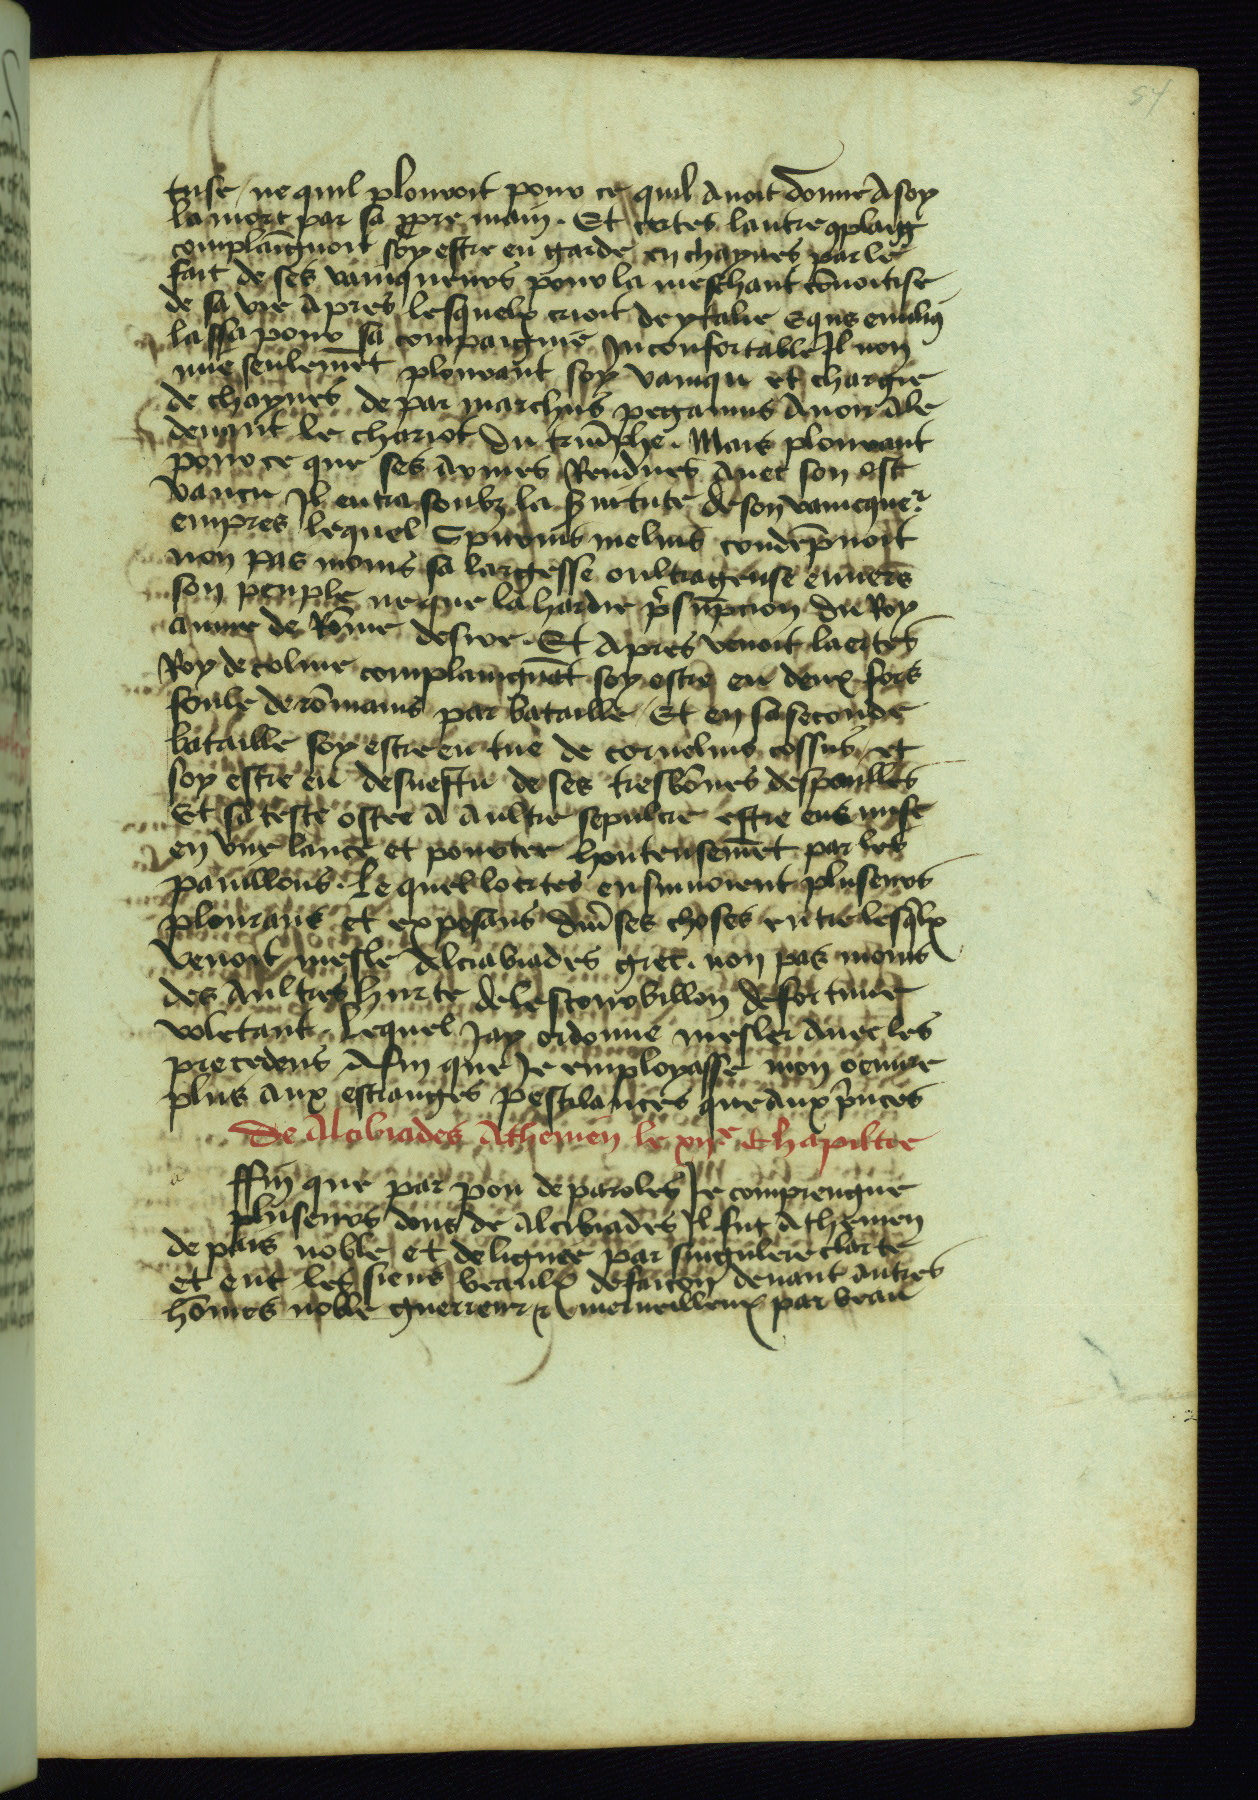 54
tuse / ne quil plouroit pour ce quil auoit donne A soy
la mort par sa ppre main . Et certes lautre qplaig
complaignoit soy estre en garde en chaynes par le
fait de ses vainqueurs pour la meschant cōuoitise
de sa vie Apres lesquelx crioit de ytalie Equs emilius
lassa pour sa compaignie Inconfortable Il non
mie seulemēt plourant soy vainqu et chargie
de chaynes de par marchus pegamus Auoir Ale
deuant le chariot du triūphe . Mais plourant
pour ce que ses Armes Rendues Auec son ost
vaincu Il entra soubz la seruitute de son vaincquer
empres lequel Spurius melius condēpnoit
non pas moins sa largesse oultrageuse enuers
son peuple ne que la hardie psūpcion du Roy
aume de Rōme desiree . Et Apres venoit laertes
Roy de colme complaingnāt soy estre eu deux fors
foule de rōmains par bataille / Et en sa seconde
bataille soy estre eu tue de cornelius cossus / et
soy estre eu desuestu de ses tresbōnes despoulles
Et sa teste ostee A Aultre sepulcre estre eus mise
en vne lance et portee honteusemēt par les
pauillons . Le quel loertes ensuiuoient pluseurs
plourans et exposans diūses choses entre lesqlx
venoit mesle Alciabiades grec . non pas moins
des Aultres hurte de lestourbillon de fortune
voletant . Lequel Jay ordonne mesler Auec les
precedens Afin que Je employasse mon oeuure
plus aux estranges pestilances que aux princes
De Alcibiades Athenien le xije Chapiltre
a
ffin que par pou de paroles Je comprengne
pluseurs dons de Alcibiades Il fut Athenien
de pais noble et de lignee par singulere clarte
et eut les siens beaulx de facon deuant Autres
hōmes noble guerreur et merueilleux par beau